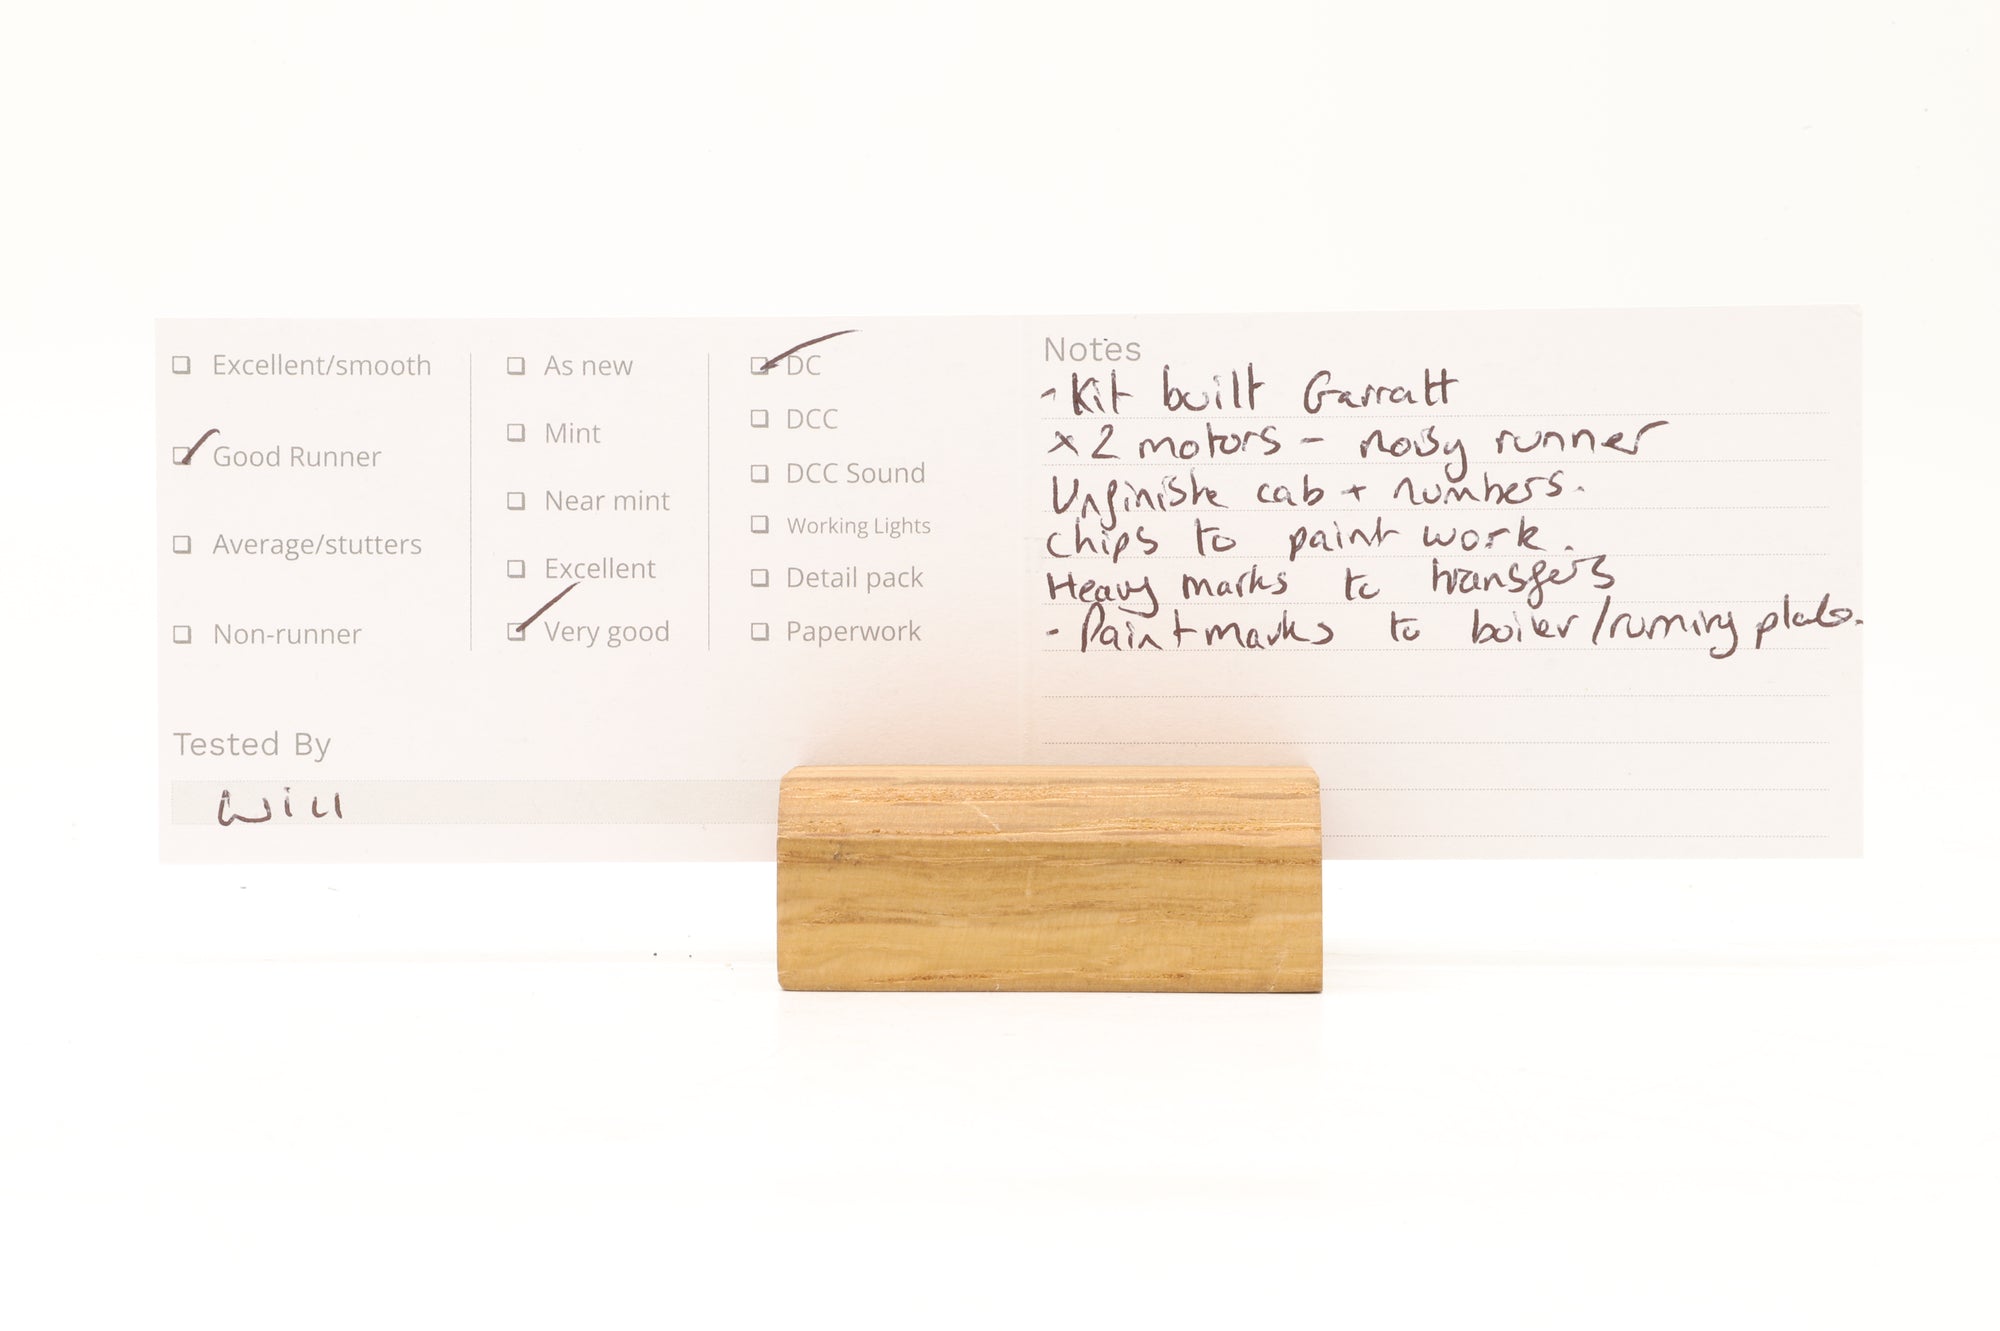 Excellent/smooth
Good Runner
Average/stutters
Non-runner
As new
Mint
Near mint
Excellent
Very good
DC
DCC
DCC Sound
Working Lights
Detail pack
Paperwork
Tested By
Will
Notes
- Kit built Garratt
x2 motors - noisy runner
Unfinishe cab + numbers.
Chips to paint work.
Heavy marks to transfers
- Paint marks to boiler/running plate.